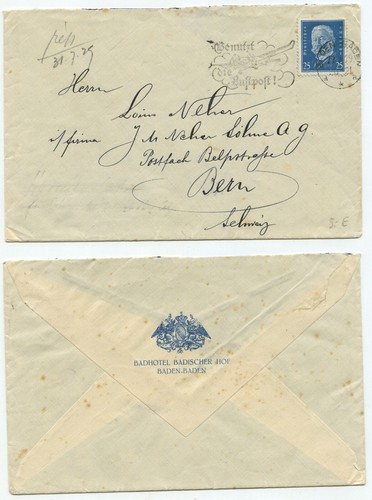 31.7.29
Benutzt
die
Luftpost!
25 25
BADEN
Herrn
Louis Neher
i/firma J M Neher Söhne A.g.
Postfach Belpstraße
Bern
Schweiz
5.-E
BADHOTEL BADISCHER HOF
BADEN-BADEN